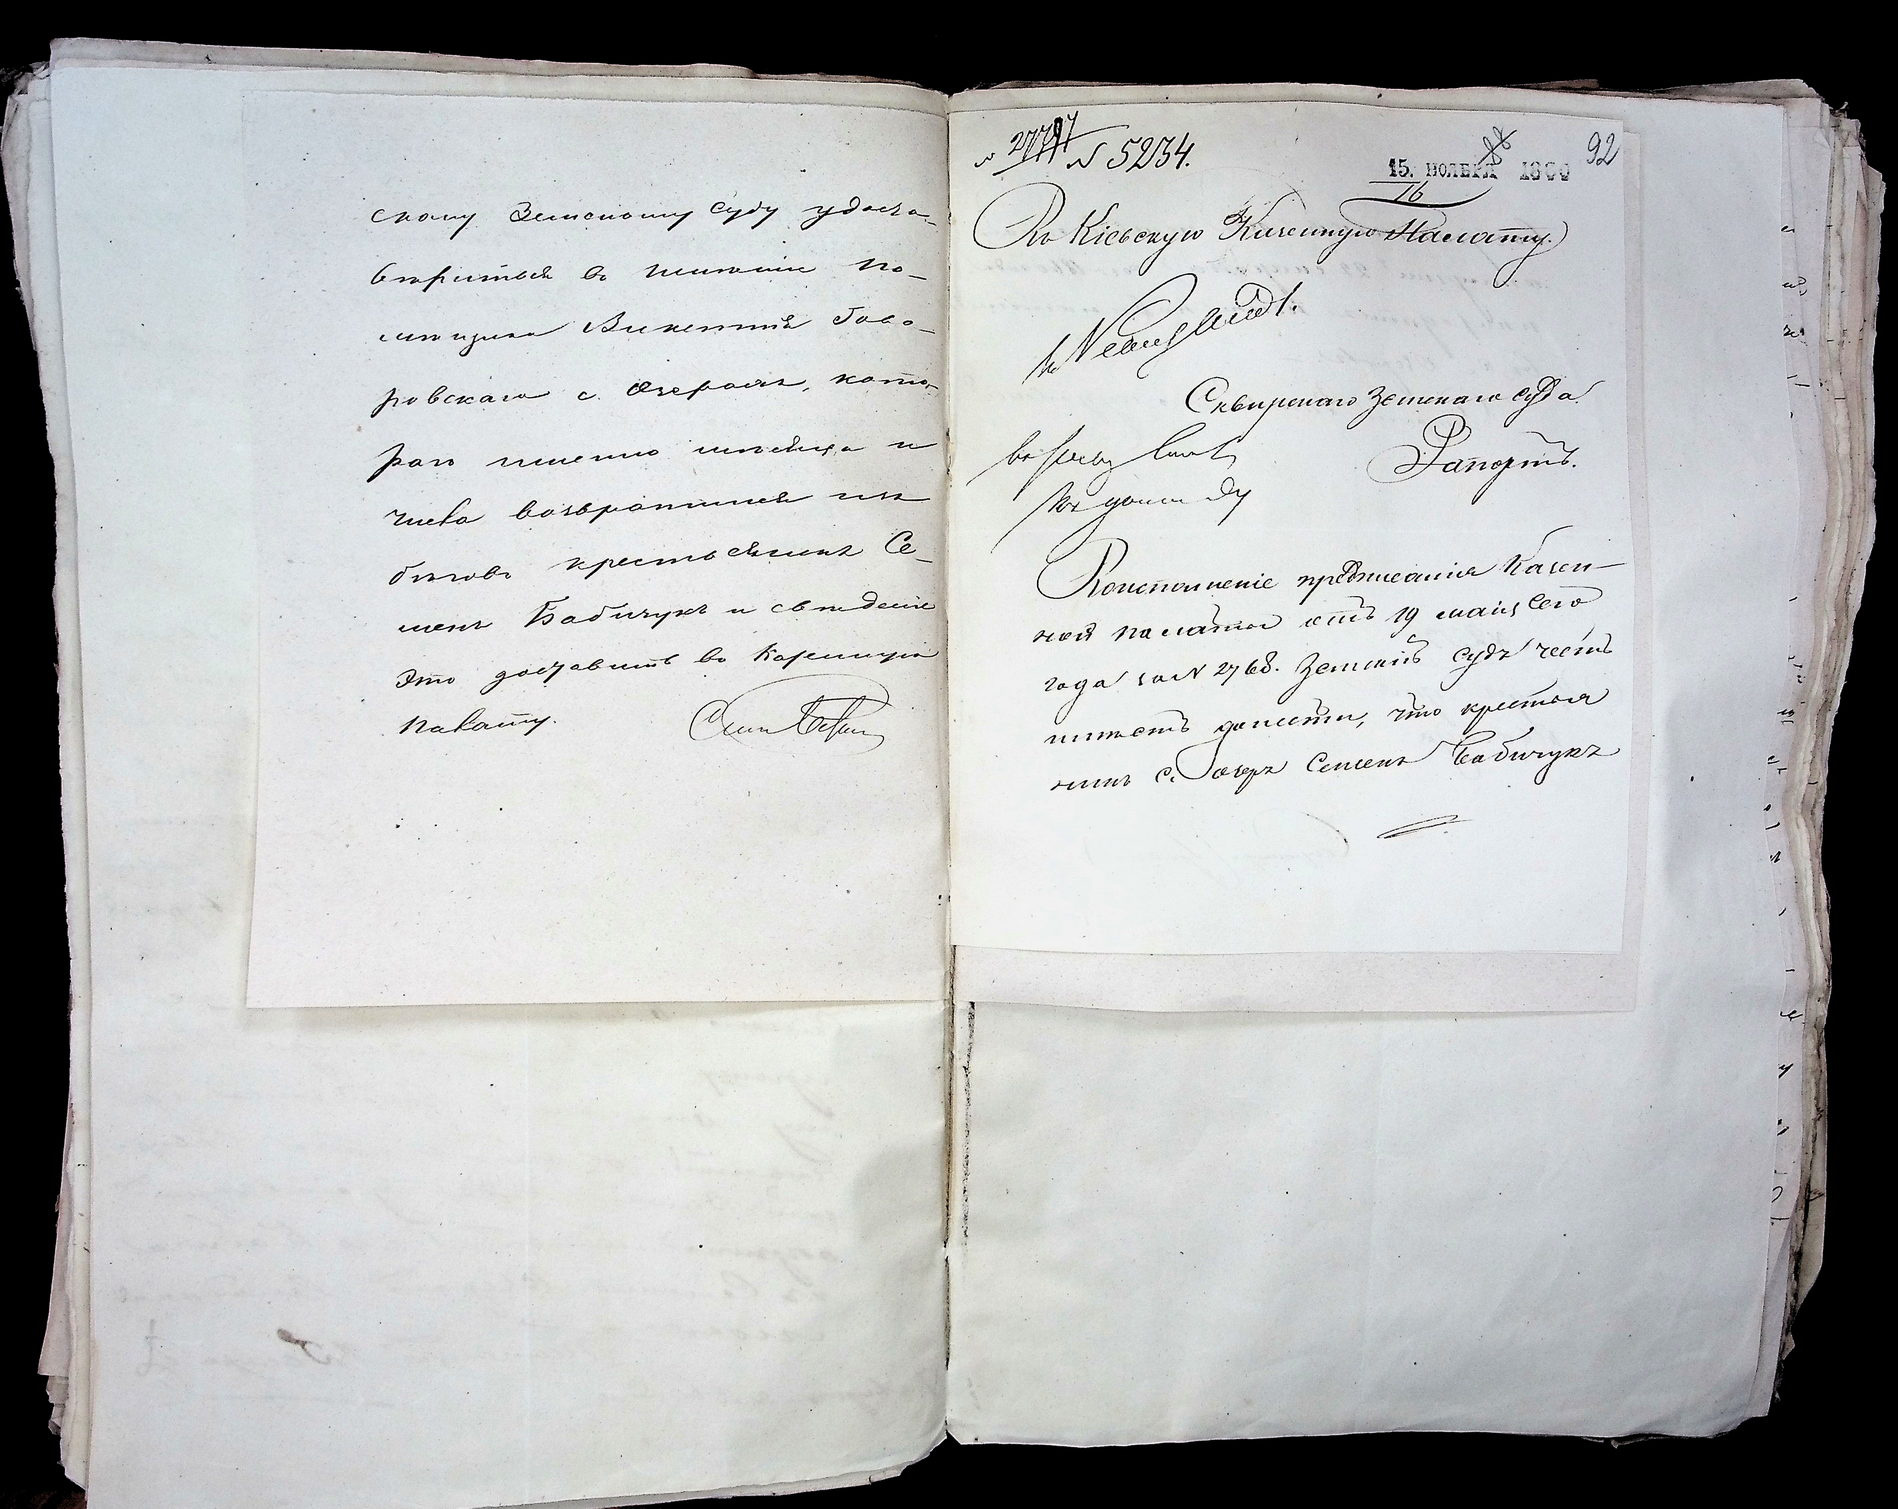 скому Земскому Суду удосто-
вериться въ имении по-
мещика Викентія Гово-
ровскаго с. Озерахъ, кото-
раго именно месяца и
числа возвратился изъ
беговъ крестьянинъ Се-
менъ Бабичукъ и сведеніе
это доставить въ Казенную
Палату.
№ 5234.
92
15. НОЯБРЯ 1860
16
Въ Кіевскую Казенную Палату.
Сквирскаго Земскаго Суда
Рапортъ.
Во исполненіе предписанія Казен-
ной палаты отъ 19 мая сего
года за № 2768. Земскій Судъ честь
имеетъ донести, что крестья
нинъ с. Озеръ Семенъ Бабичукъ